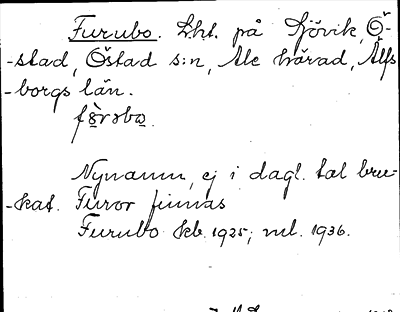 Furubo. Lht. på Sjövik, Ö-
-stad, Östad s:n, Ale härad, Älfs
-borgs län.
Nynamn, ej i dagl. tal bru-
-kat. Furor finnas
Furubo kb. 1925; ml. 1936.